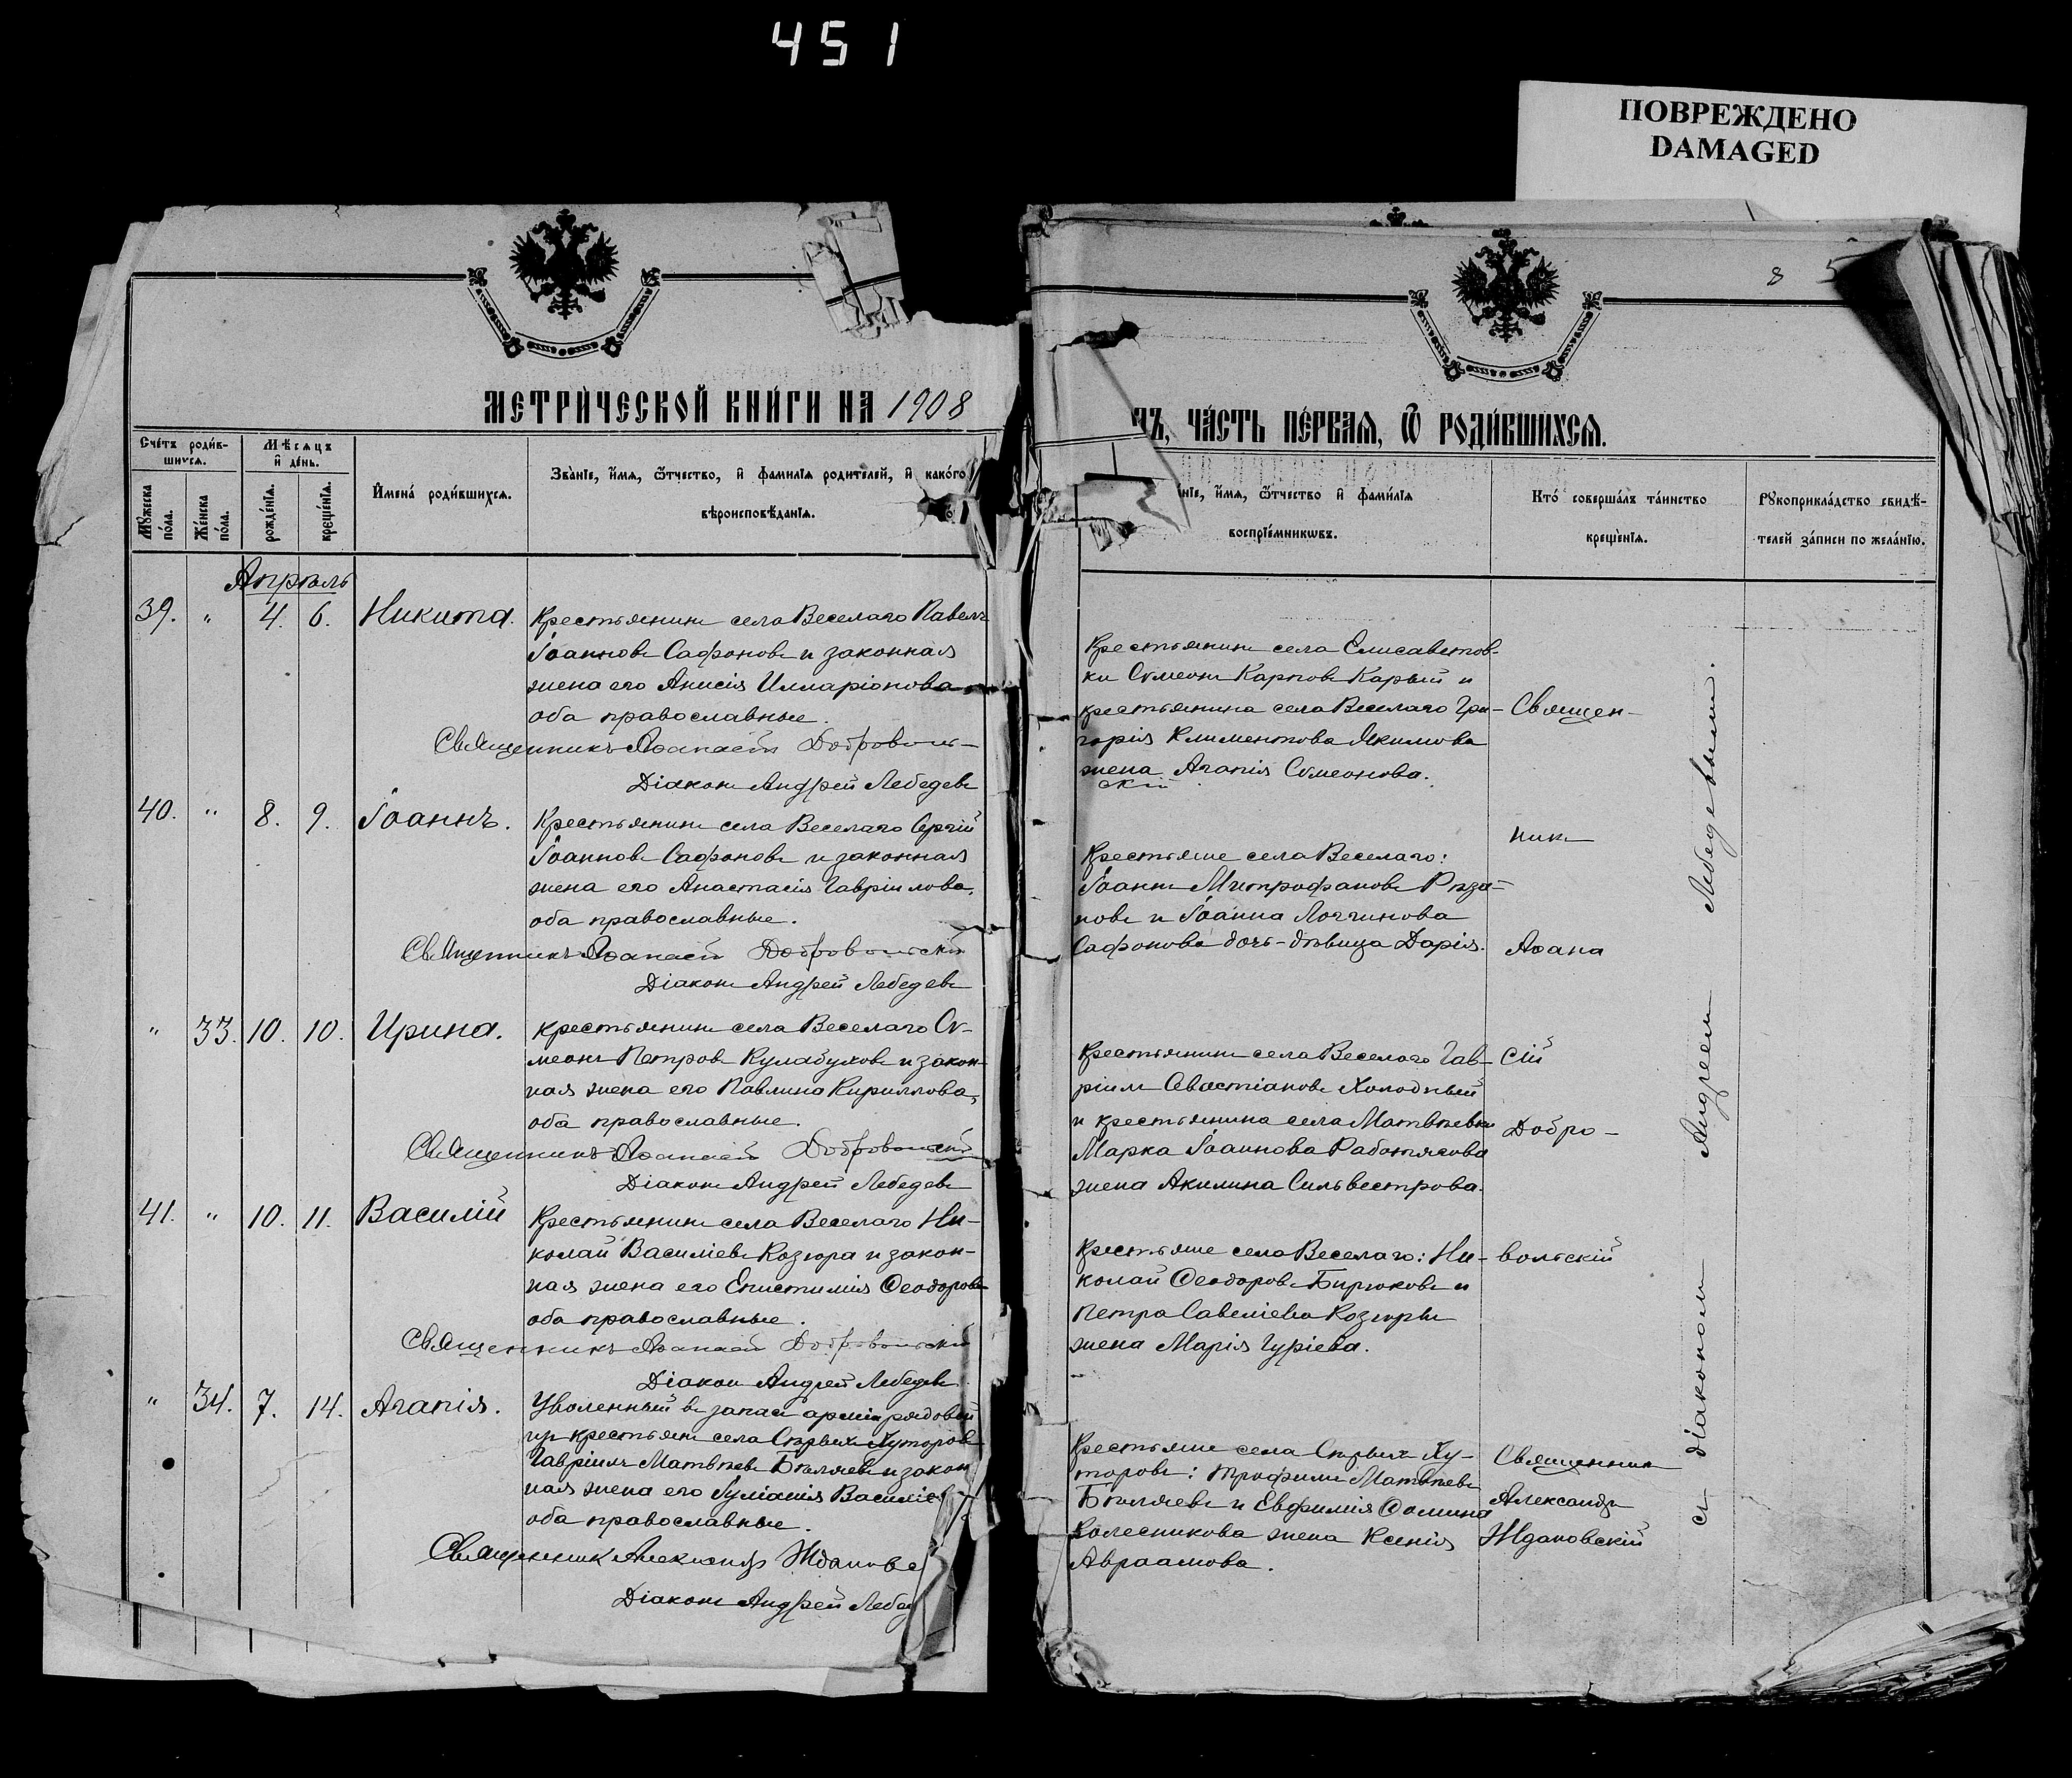 451
ПОВРЕЖДЕНО
DAMAGED
8
МЕТРИ́ЧЕСКОЙ КНИ́ГИ НА 1908
ДЪ, ЧА́СТЬ ПЕ́РВАЯ, Ѿ РОДИ́ВШИХСЯ.
Сче́тъ роди́в-
шихся.
Мѣсяцъ
и҆ де́нь.
Мꙋжеска
по́ла.
Же́нска
по́ла.
рожде́нїѧ.
креще́нїѧ.
И҆мена̀ роди́вшихсѧ.
Зва́нїе, и҆́мѧ, ѻ҆́тчество, и҆ фами́лїѧ роди́телей, и҆ како́гѡ
вѣроисповѣ́данїѧ.
нїе, и҆́мѧ, ѻ҆́тчество и҆ фами́лїѧ
воспрїе́мникѡвъ.
Кто̀ соверша́лъ та́инство
креще́нїѧ.
Рꙋкоприкла́дство свидѣ́-
телей за́писи по жела́нїю.
Апрѣль
39. " 4. 6. Никита.
Крестьянинъ села Веселаго Павелъ
Іоанновъ Сафоновъ и законная
жена его Анисія Илларіонова
оба православные.
Священникъ Аѳанасій Доброволь-
скій
Діаконъ Андрей Лебедевъ
Крестьянинъ села Елисаветов-
ки Сѵмеонъ Карповъ Карый и
крестьянина села Веселаго Гри-
горія Климентова Якимова
жена Агапія Сѵмеонова.
40. " 8. 9. Іоаннъ.
Крестьянинъ села Веселаго Сергій
Іоанновъ Сафоновъ и законная
жена его Анастасія Гавріилова,
оба православные.
Священникъ Аѳанасій Добровольскій
Діаконъ Андрей Лебедевъ
Крестьяне села Веселаго:
Іоаннъ Митрофановъ Ряза-
новъ и Іоанна Логгинова
Сафонова дочь-дѣвица Дарія.
" 33. 10. 10. Ирина.
Крестьянинъ села Веселаго Сѵ-
меонъ Петровъ Кулабуховъ и закон-
ная жена его Павлина Кириллова,
оба православные.
Священникъ Аѳанасій Добровольскій
Діаконъ Андрей Лебедевъ
Крестьянинъ села Веселаго Гав-
ріилъ Севастіановъ Холодный
и крестьянина села Матвѣевки
Марка Іоаннова Работягова
жена Акилина Сильвестрова.
41. " 10. 11. Василій
Крестьянинъ села Веселаго Ни-
колай Василіевъ Козюра и закон-
ная жена его Епистимія Ѳеодорова
оба православные.
Священникъ Аѳанасій Добровольскій
Діаконъ Андрей Лебедевъ
Крестьяне села Веселаго: Ни-
колай Ѳеодоровъ Бирюковъ и
Петра Савеліева Козюры
жена Марія Гуріева.
" 34. 7. 14. Агапія.
Уволенный въ запасъ арміи рядовой
изъ крестьянъ села Сѣрыхъ Хуторовъ
Гавріилъ Матвѣевъ Бѣляевъ и закон
ная жена его Іуліанія Василіе
оба православные.
Священникъ Александръ Ждановс
Діаконъ Андрей Лебед
Крестьяне села Сѣрыхъ Ху-
торовъ: Трофимъ Матвѣевъ
Бѣляевъ и Евфимія Ѳомина
Колесникова жена Ксенія
Авраамова.
Священ-
никъ
Аѳана
сій
Добро-
вольскій
Священникъ
Александръ
Ждановскій
съ діакономъ Андреемъ Лебедевымъ.